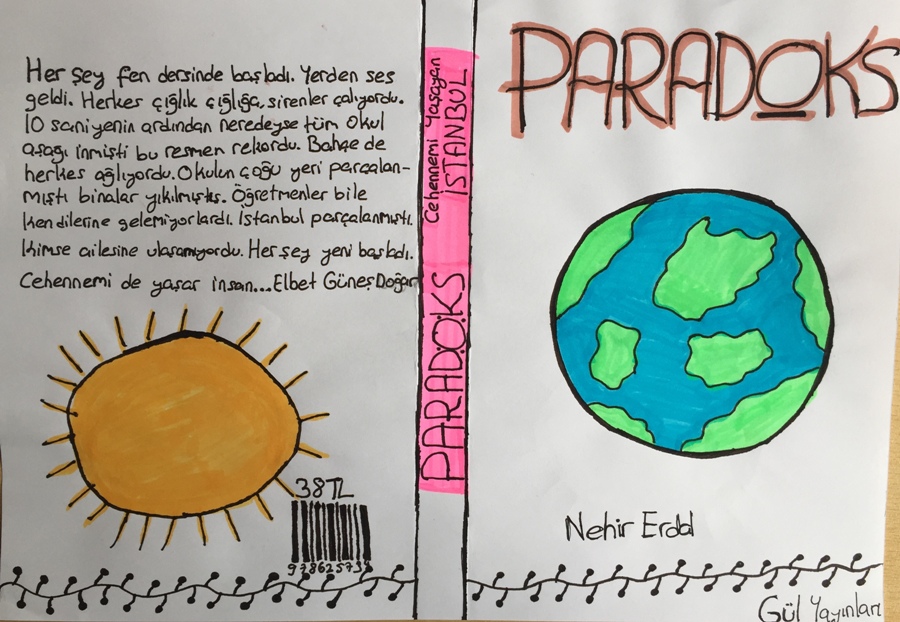 Her Şey fen dersinde başladı. Yerden ses
geldi. Herkes çığlık çığlığa, sirenler çalıyordu.
10 saniyenin ardından neredeyse tüm okul
aşağı inmişti bu resmen rekordu. Bahçe de
herkes ağlıyordu. Okulun çoğu yeri parçalan-
mıştı binalar yıkılmıştı. Öğretmenler bile
kendilerine gelemiyorlardı. İstanbul parçalanmıştı.
kimse ailesine ulaşamıyordu. Her şey yeni başladı.
Cehennemi de yaşar insan... Elbet Güneş Doğar
38 TL
Cehennemi Yaşayan
İSTANBUL
PARADOKS
PARADOKS
Nehir Erdal
Gül Yayınları